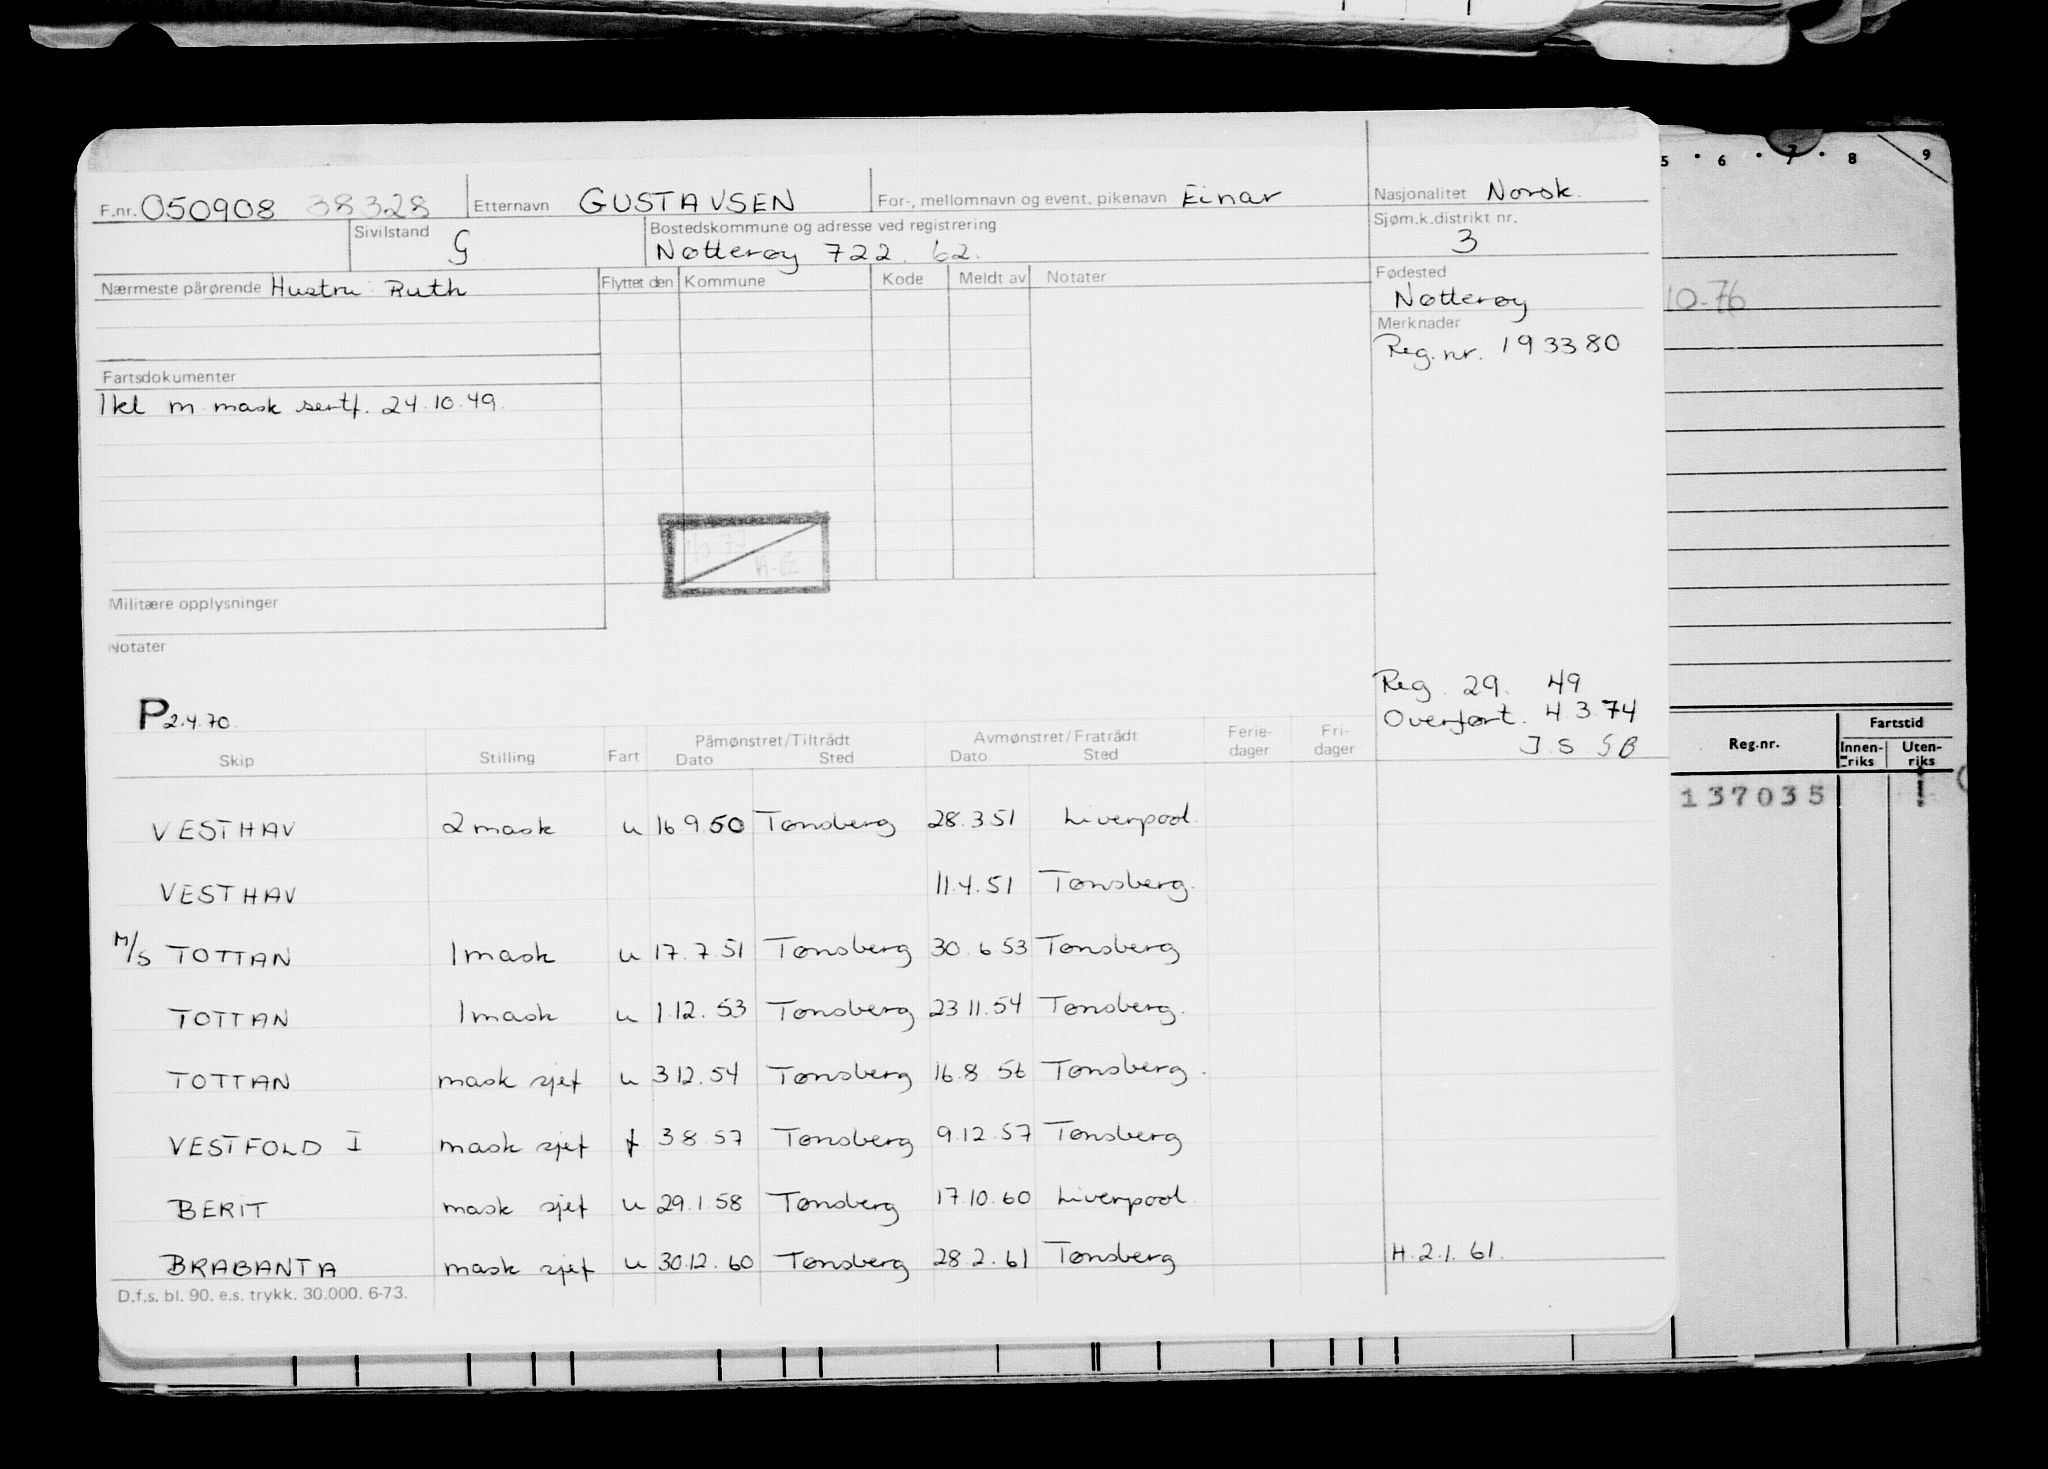 5 · 6 · 7 · 8 9
F.nr. 050908 38328 Etternavn GUSTAVSEN For-, mellomnavn og event. pikenavn Einar Nasjonalitet Norsk.
Sivilstand G Bostedskommune og adresse ved registrering Sjøm.k.distrikt nr.
Nøtterøy 722. 62. 3
Nærmeste pårørende Hustru: Ruth Flyttet den Kommune Kode Meldt av Notater Fødested
Nøtterøy
10-76
Merknader
Reg. nr. 193380
Fartsdokumenter
1kl m mask sertf. 24.10.49.
Militære opplysninger
Notater
Reg. 29. 49
P 2.4.70. Overført. 4.3.74
J.S. SB
Skip Stilling Fart Påmønstret/Tiltrådt Dato Sted Avmønstret/Fratrådt Dato Sted Ferie-dager Fri-dager
Reg.nr. Fartstid Innen-riks Uten-riks
137035
VESTHAV 2 mask u 16.9.50 Tønsberg 28.3.51 Liverpool.
VESTHAV 11.4.51 Tønsberg.
M/S TOTTAN 1 mask u 17.7.51 Tønsberg 30.6.53 Tønsberg
TOTTAN 1 mask u 1.12.53 Tønsberg 23.11.54 Tønsberg.
TOTTAN mask sjef u 3.12.54 Tønsberg 16.8.56 Tønsberg.
VESTFOLD I mask sjef f 3.8.57 Tønsberg 9.12.57 Tønsberg
BERIT mask sjef u 29.1.58 Tønsberg 17.10.60 Liverpool.
BRABANTA mask sjef u 30.12.60 Tønsberg 28.2.61 Tønsberg H. 2.1.61.
D.f.s. bl. 90. e.s. trykk. 30.000. 6-73.